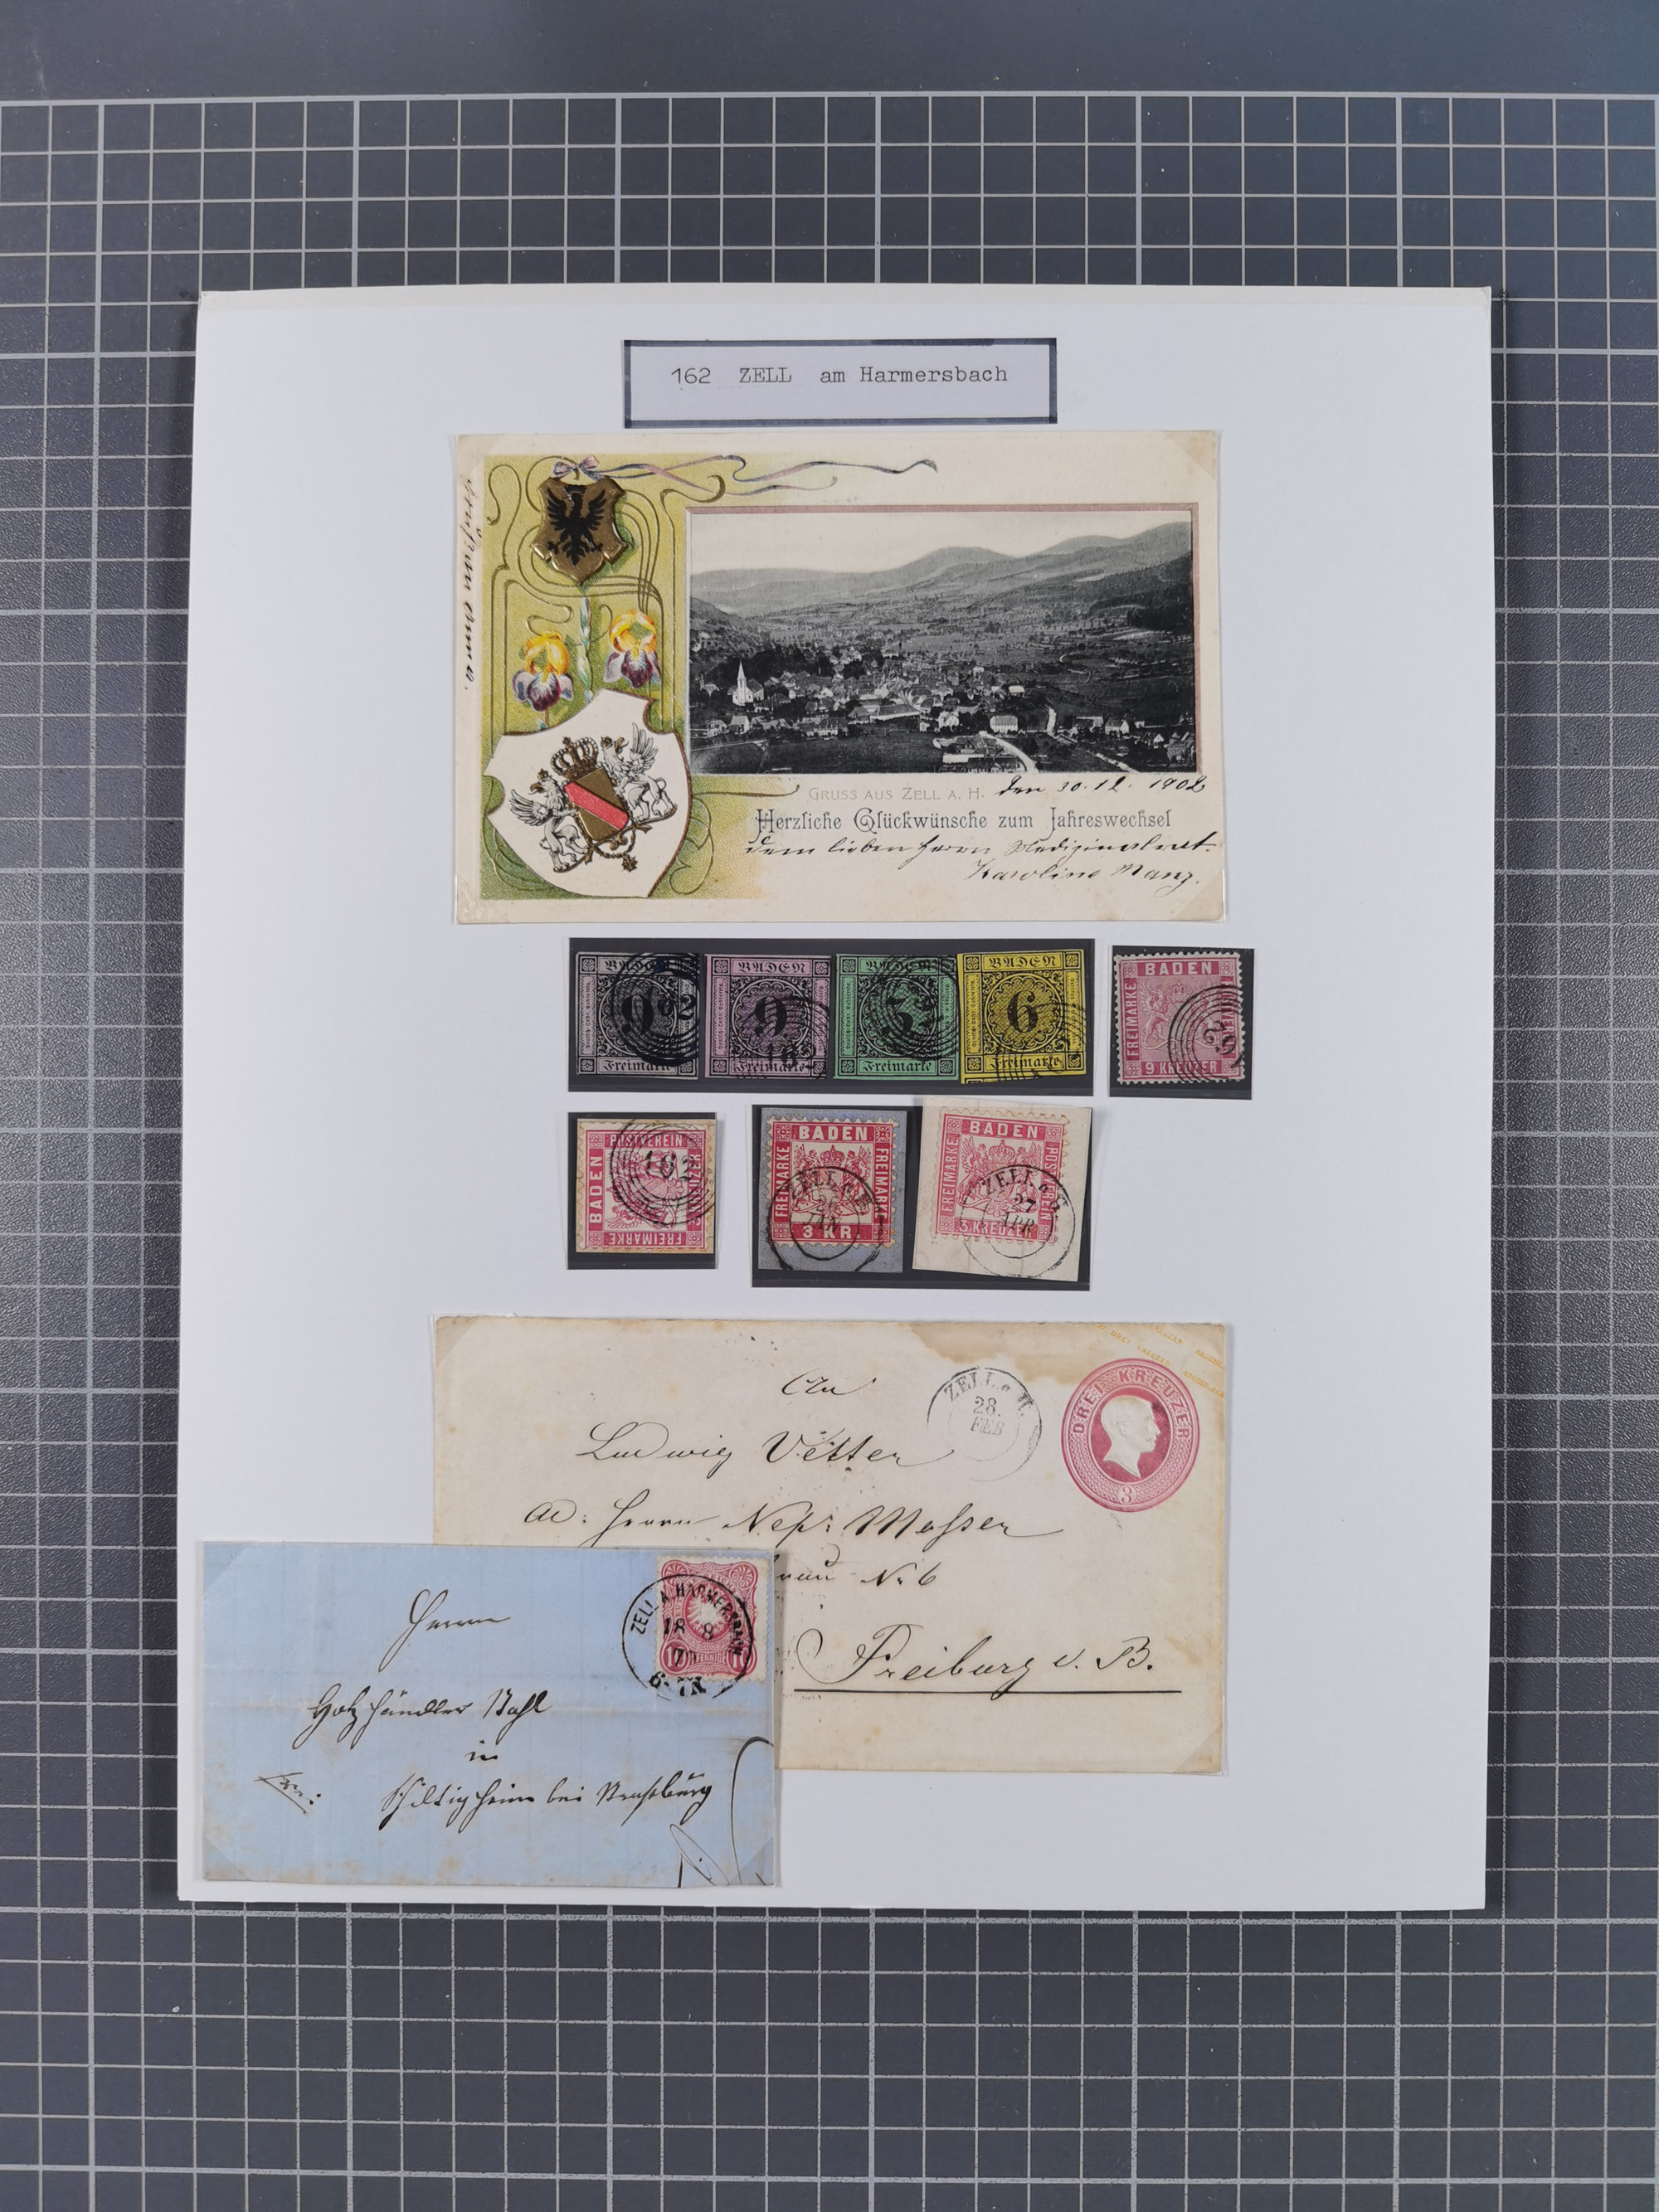 162 ZELL am Harmersbach
GRUSS AUS ZELL A. H. den 30.12. 1902
Herzliche Glückwünsche zum Jahreswechsel
dem lieben Herrn Medizinalrat.
Karoline Manz.
BADEN
9
Freimarke
BADEN
9
162
Freimarke
BADEN
3
Freimarke
BADEN
6
Freimarke
BADEN
FREIMARKE
9 KREUZER
POSTVEREIN
BADEN
162
FREIMARKE
BADEN
FREIMARKE
FREIMARKE
3 KR
ZELL a. H.
JAN
BADEN
FREIMARKE
POSTVEREIN
3 KREUZER
ZELL a. H.
27
APR
DREI KREUZER
3
ZELL a. H.
28.
FEB
An
Ludwig Vetter
Ad: Herrn Nep: Mosser
No 6
Freiburg i. B.
ZELL A. HARMERSBACH
18 8
PFENNIGE
Herrn
Holzhändler Stahl
in
Schiltigheim bei Straßburg